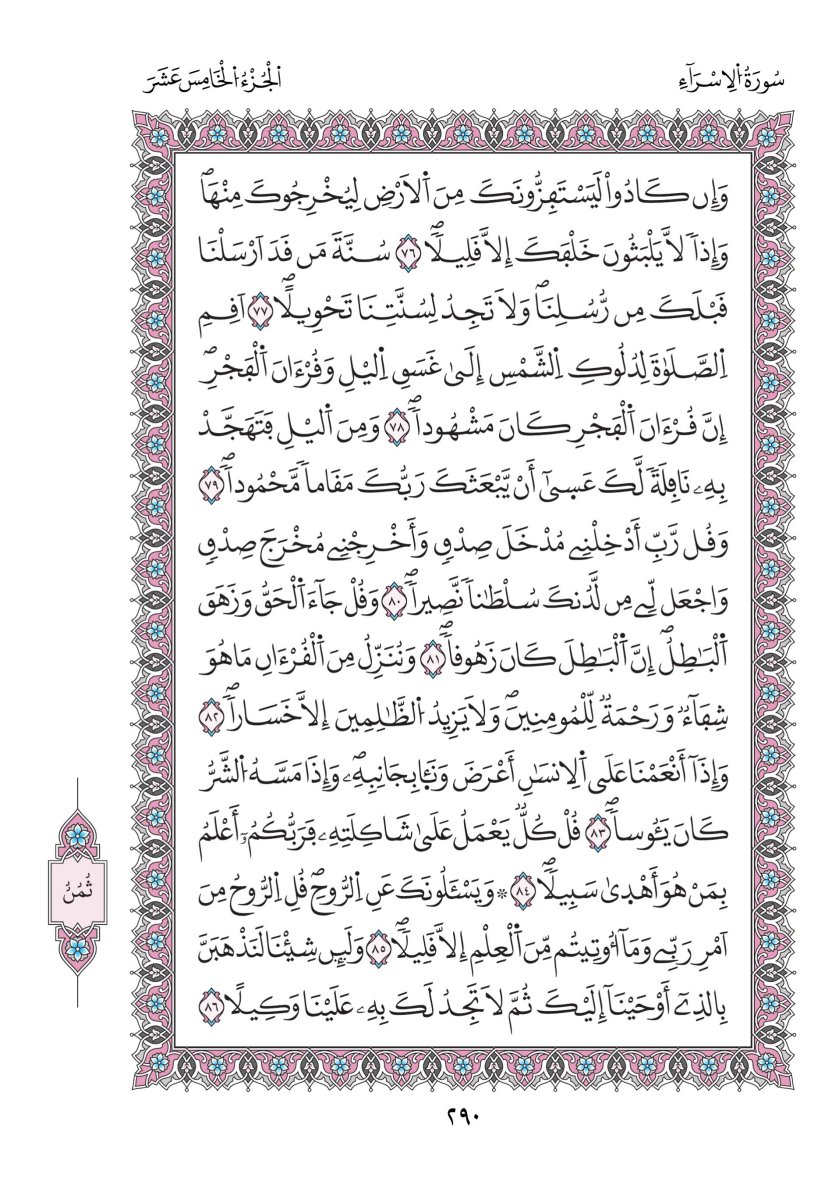 سُورَةُ اُ۬لِاسْرَآءِ
اَ۬لْجُزْءُ اُ۬لْخَامِسَ عَشَرَ
وَإِن كَادُواْ لَيَسْتَفِزُّونَكَ مِنَ اَ۬لَارْضِ لِيُخْرِجُوكَ مِنْهَاۖ
وَإِذاٗ لَّا يَلْبَثُونَ خَلْفَكَ إِلَّا قَلِيلاٗۖ ٧٦ سُنَّةَ مَن قَدَ اَرْسَلْنَا
قَبْلَكَ مِن رُّسُلِنَاۖ وَلَا تَجِدُ لِسُنَّتِنَا تَحْوِيلاًۖ ٧٧ اَقِمِ
اِ۬لصَّلَوٰةَ لِدُلُوكِ اِ۬لشَّمْسِ إِلَىٰ غَسَقِ اِ۬ليْلِ وَقُرْءَانَ اَ۬لْفَجْرِۖ
إِنَّ قُرْءَانَ اَ۬لْفَجْرِ كَانَ مَشْهُوداٗۖ ٧٨ وَمِنَ اَ۬ليْلِ فَتَهَجَّدْ
بِهِۦ نَافِلَةٗ لَّكَ عَسۭيٰٓ أَنْ يَّبْعَثَكَ رَبُّكَ مَقَاماٗ مَّحْمُوداٗۖ ٧٩
وَقُل رَّبِّ أَدْخِلْنِے مُدْخَلَ صِدْقٖ وَأَخْرِجْنِے مُخْرَجَ صِدْقٖ
وَاجْعَل لِّے مِن لَّدُنكَ سُلْطَٰناٗ نَّصِيراٗۖ ٨٠ وَقُلْ جَآءَ اَ۬لْحَقُّ وَزَهَقَ
اَ۬لْبَٰطِلُۖ إِنَّ اَ۬لْبَٰطِلَ كَانَ زَهُوقاٗۖ ٨١ وَنُنَزِّلُ مِنَ اَ۬لْقُرْءَانِ مَا هُوَ
شِفَآءٞ وَرَحْمَةٞ لِّلْمُومِنِينَۖ وَلَا يَزِيدُ اُ۬لظَّٰلِمِينَ إِلَّا خَسَاراٗۖ ٨٢
وَإِذَآ أَنْعَمْنَا عَلَى اَ۬لِانسَٰنِ أَعْرَضَ وَنَـَٔا بِجَانِبِهِۖۦ وَإِذَا مَسَّهُ اُ۬لشَّرُّ
كَانَ يَـُٔوساٗۖ ٨٣ قُلْ كُلّٞ يَعْمَلُ عَلَىٰ شَاكِلَتِهِۦ فَرَبُّكُمُۥٓ أَعْلَمُ
بِمَنْ هُوَ أَهْدۭيٰ سَبِيلاٗۖ ٨٤ ۞ وَيَسْـَٔلُونَكَ عَنِ اِ۬لرُّوحِۖ قُلِ اِ۬لرُّوحُ مِنَ
اَمْرِ رَبِّے وَمَآ أُوتِيتُم مِّنَ اَ۬لْعِلْمِ إِلَّا قَلِيلاٗۖ ٨٥ وَلَئِن شِئْنَا لَنَذْهَبَنَّ
بِالذِےٓ أَوْحَيْنَآ إِلَيْكَ ثُمَّ لَا تَجِدُ لَكَ بِهِۦ عَلَيْنَا وَكِيلاً ٨٦
ثُمُنُ
٢٩٠